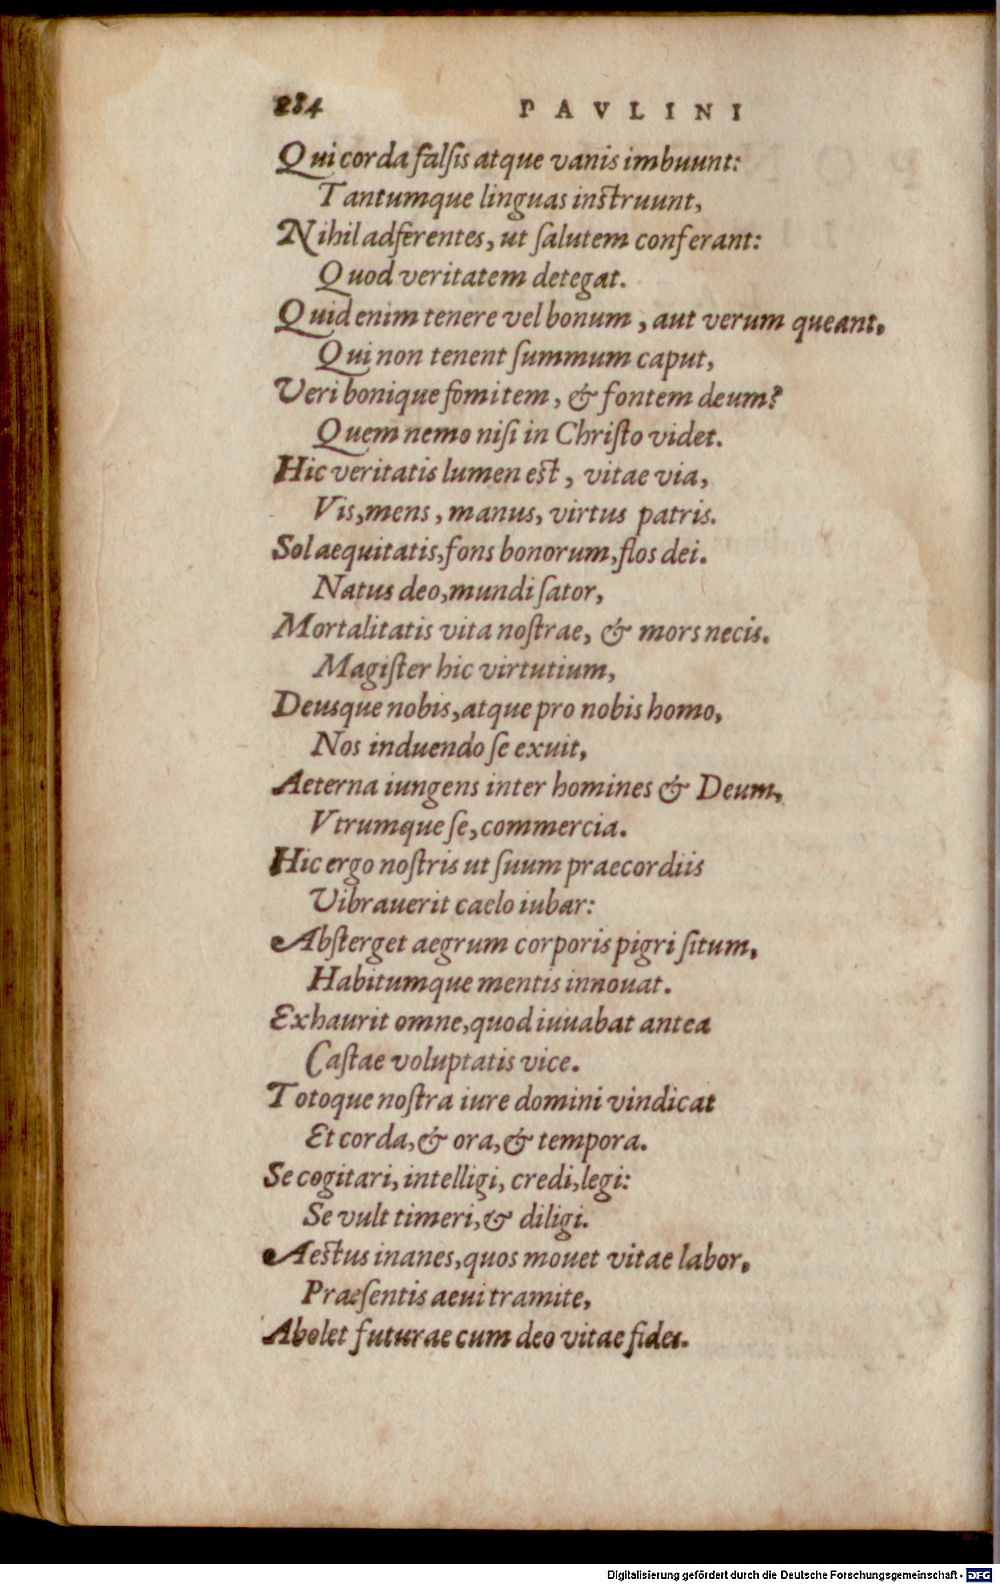 284 PAVLINI
Qui corda falsis atque vanis imbuunt:
Tantumque linguas instruunt,
Nihil adferentes, ut salutem conferant:
Quod veritatem detegat.
Quid enim tenere vel bonum, aut verum queant,
Qui non tenent summum caput,
Veri bonique fomitem, & fontem deum?
Quem nemo nisi in Christo videt.
Hic veritatis lumen est, vitae via,
Vis, mens, manus, virtus patris.
Sol aequitatis, fons bonorum, flos dei.
Natus deo, mundi sator,
Mortalitatis vita nostrae, & mors necis.
Magister hic virtutium,
Deusque nobis, atque pro nobis homo,
Nos induendo se exuit,
Aeterna iungens inter homines & Deum,
Vtrumque se, commercia.
Hic ergo nostris ut suum praecordiis
Vibrauerit caelo iubar:
Absterget aegrum corporis pigri situm,
Habitumque mentis innouat.
Exhaurit omne, quod iuuabat antea
Castae voluptatis vice.
Totoque nostra iure domini vindicat
Et corda, & ora, & tempora.
Se cogitari, intelligi, credi, legi:
Se vult timeri, & diligi.
Aestus inanes, quos mouet vitae labor,
Praesentis aeui tramite,
Abolet futurae cum deo vitae fides.
Digitalisierung gefördert durch die Deutsche Forschungsgemeinschaft - DFG